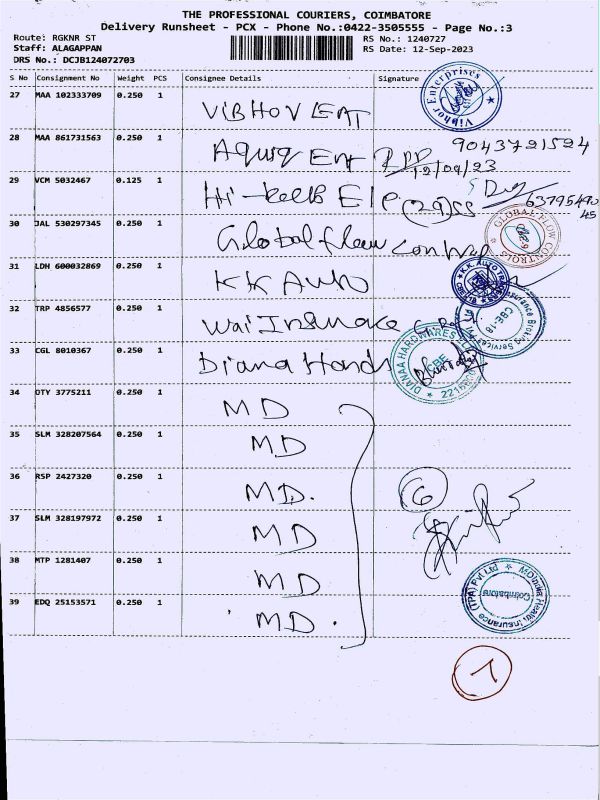 THE PROFESSIONAL COURIERS, COIMBATORE
Delivery Runsheet - PCX - Phone No.:0422-3505555 - Page No.:3
Route: RGKNR ST RS No.: 1240727
Staff: ALAGAPPAN RS Date: 12-Sep-2023
DRS No.: DCJB124072703
S No Consignment No Weight PCS Consignee Details Signature
27 MAA 102333709 0.250 1 Vibhor Enterprises
28 MAA 861731563 0.250 1 Aqua Ent 9043721524
12/09/23
29 VCM 5032467 0.125 1
30 JAL 530297345 0.250 1 Global flow GLOBAL FLOW CONTROLS
31 LDH 600032869 0.250 1 KK Auto K.K. AUTO
32 TRP 4856577 0.250 1 Insurance Broking Services CBE-18
33 CGL 8010367 0.250 1 Diana DIANAA HARDWARES CBE
34 OTY 3775211 0.250 1 MD
35 SLM 328207564 0.250 1 MD
36 RSP 2427320 0.250 1 MD.
6
37 SLM 328197972 0.250 1 MD
38 MTP 1281407 0.250 1 MD
39 EDQ 25153571 0.250 1 MD.
MDIndia Health Insurance (TPA) Pvt Ltd
Coimbatore
1